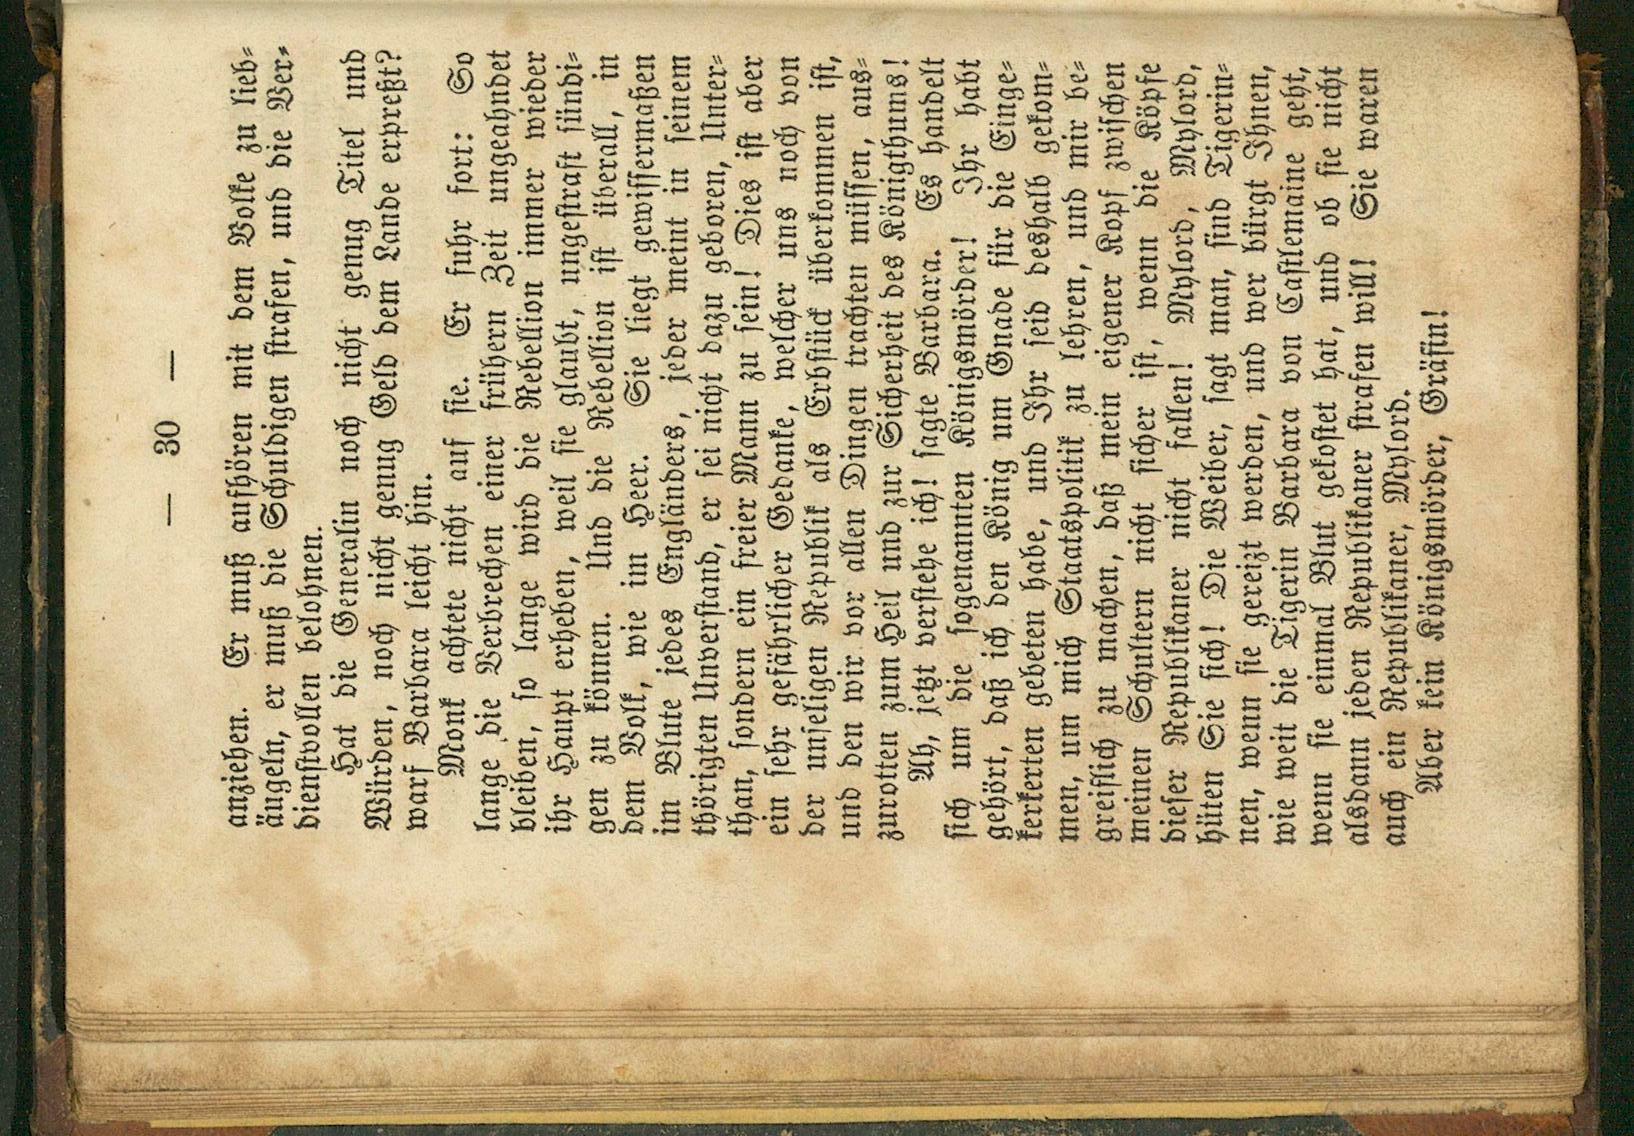 — 30 —
anziehen. Er muß aufhören mit dem Volke zu lieb-
äugeln, er muß die Schuldigen strafen, und die Ver-
dienstvollen belohnen.
Hat die Generalin noch nicht genug Titel und
Würden, noch nicht genug Geld dem Lande erpreßt?
warf Barbara leicht hin.
Monk achtete nicht auf sie. Er fuhr fort: So
lange die Verbrechen einer frühern Zeit ungeahndet
bleiben, so lange wird die Rebellion immer wieder
ihr Haupt erheben, weil sie glaubt, ungestraft sündi-
gen zu können. Und die Rebellion ist überall, in
dem Volk, wie im Heer. Sie liegt gewissermaßen
im Blute jedes Engländers, jeder meint in seinem
thörigten Unverstand, er sei nicht dazu geboren, Unter-
than, sondern ein freier Mann zu sein! Dies ist aber
ein sehr gefährlicher Gedanke, welcher uns noch von
der unseligen Republik als Erbstück überkommen ist,
und den wir vor allen Dingen trachten müssen, aus-
zurotten zum Heil und zur Sicherheit des Königthums!
Ah, jetzt verstehe ich! sagte Barbara. Es handelt
sich um die sogenannten Königsmörder! Ihr habt
gehört, daß ich den König um Gnade für die Einge-
kerkerten gebeten habe, und Ihr seid deshalb gekom-
men, um mich Staatspolitik zu lehren, und mir be-
greiflich zu machen, daß mein eigener Kopf zwischen
meinen Schultern nicht sicher ist, wenn die Köpfe
dieser Republikaner nicht fallen! Mylord, Mylord,
hüten Sie sich! Die Weiber, sagt man, sind Tigerin-
nen, wenn sie gereizt werden, und wer bürgt Ihnen,
wie weit die Tigerin Barbara von Castlemaine geht,
wenn sie einmal Blut gekostet hat, und ob sie nicht
alsdann jeden Republikaner strafen will! Sie waren
auch ein Republikaner, Mylord.
Aber kein Königsmörder, Gräfin!